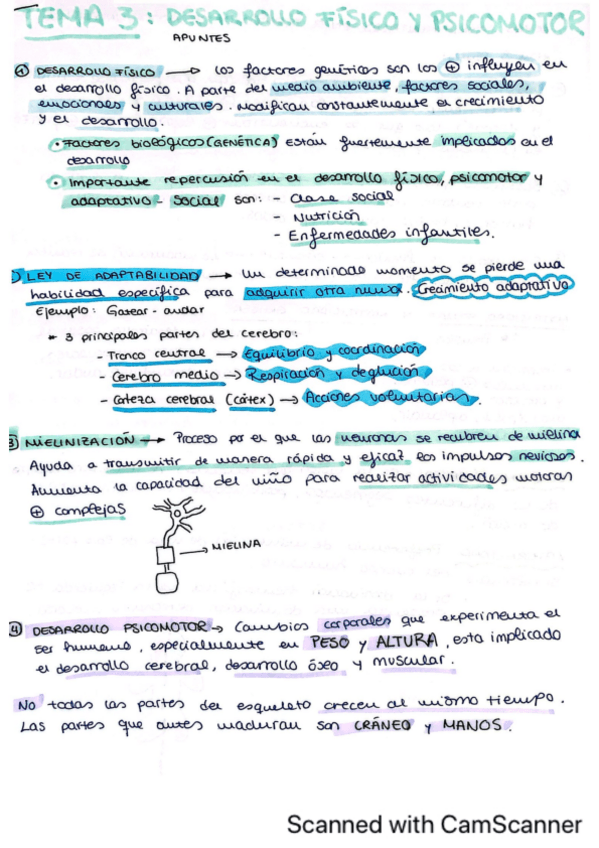 TEMA 3: DESARROLLO FÍSICO Y PSICOMOTOR
APUNTES
① DESARROLLO FÍSICO → Los factores genéticos son los ⊕ influyen en
el desarrollo físico. A parte del medio ambiente, factores sociales,
emocionales y culturales. Modifican constantemente el crecimiento
y el desarrollo.
• Factores biológicos (GENÉTICA) están fuertemente implicados en el
desarrollo
• Importante repercusión en el desarrollo físico, psicomotor y
adaptativo - social son: - Clase social
- Nutrición
- Enfermedades infantiles.
) LEY DE ADAPTABILIDAD → Un determinado momento se pierde una
habilidad específica para adquirir otra nueva. Crecimiento adaptativo
Ejemplo: Gatear - andar
3 principales partes del cerebro:
- Tronco central → Equilibrio y coordinación
- Cerebro medio → Respiración y deglución
- Corteza cerebral (córtex) → Acciones voluntarias.
3) MIELINIZACIÓN → Proceso por el que las neuronas se recubren de mielina
Ayuda a transmitir de manera rápida y eficaz los impulsos nerviosos.
Aumenta la capacidad del niño para realizar actividades motoras
⊕ complejas
→ MIELINA
④ DESARROLLO PSICOMOTOR → Cambios corporales que experimenta el
ser humano, especialmente en PESO y ALTURA, esta implicado
el desarrollo cerebral, desarrollo óseo y muscular.
No todas las partes del esqueleto crecen al mismo tiempo.
Las partes que antes maduran son CRÁNEO y MANOS.
Scanned with CamScanner